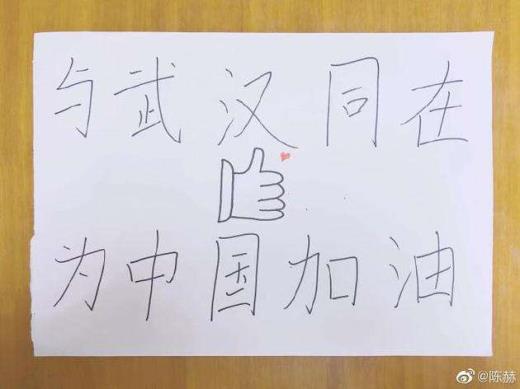 与武汉同在
为中国加油
@陈赫